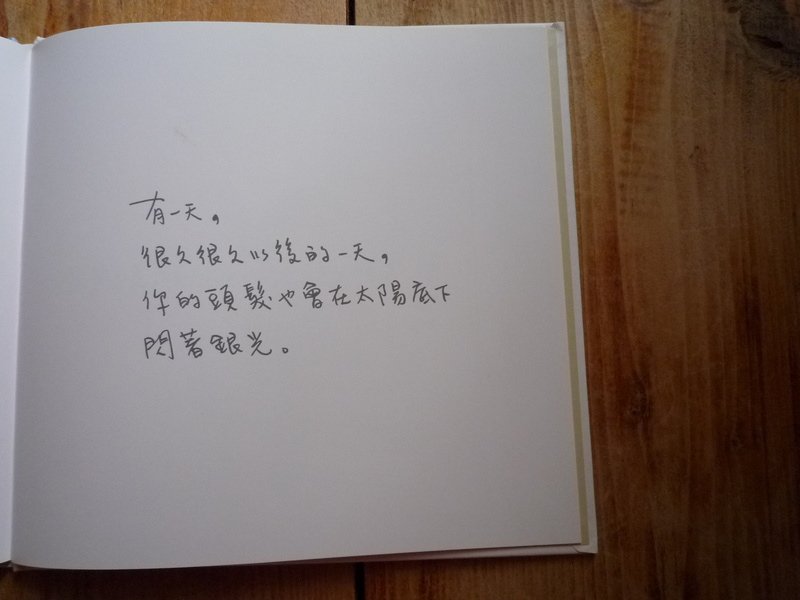 有一天，
很久很久以後的一天，
你的頭髮也會在太陽底下
閃著銀光。